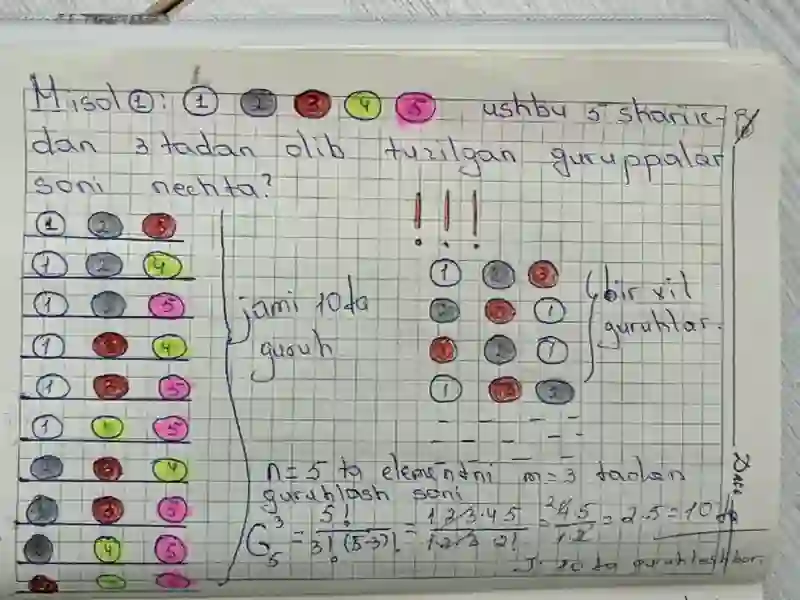 Misol ①: ① ② ③ ④ ⑤ ushbu 5 sharik-
dan 3 tadan olib tuzilgan guruppalar
soni nechta?
! ! !
① ② ③
① ② ④
① ② ⑤
① ③ ④
① ③ ⑤
① ④ ⑤
② ③ ④
② ③ ⑤
② ④ ⑤
jami 10 ta
guruh
① ② ③
② ③ ①
③ ② ①
① ③ ②
bir xil
guruhlar.
n=5 ta elementni m=3 tadan
guruhlash soni
C₅³ = 5!/3!(5-3)! = 1·2·3·4·5/1·2·3·2! = 4·5/1·2 = 2·5=10 ta
J: 10 ta guruhlash bor.